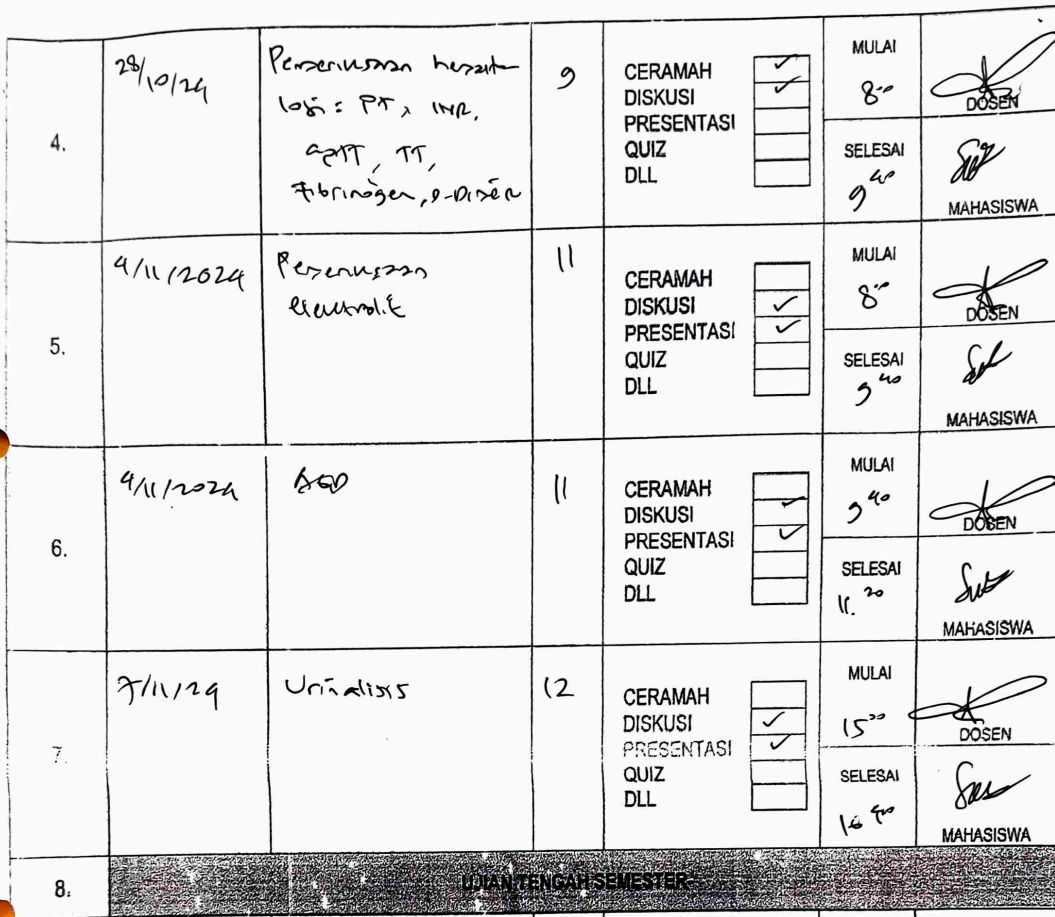 4.
28/10/24
Pemeriksaan hemato
logi : PT, INR,
aPTT, TT,
Fibrinogen, D-Dimer
9
CERAMAH ✓
DISKUSI ✓
PRESENTASI
QUIZ
DLL
MULAI
8.00
SELESAI
9 40
DOSEN
MAHASISWA
5.
4/11/2024
Pemeriksaan
elektrolit
11
CERAMAH
DISKUSI ✓
PRESENTASI ✓
QUIZ
DLL
MULAI
8.00
SELESAI
9 40
DOSEN
MAHASISWA
6.
4/11/2024
AGD
11
CERAMAH
DISKUSI ✓
PRESENTASI ✓
QUIZ
DLL
MULAI
9 40
SELESAI
11. 20
DOSEN
MAHASISWA
7.
7/11/24
Urinalisis
12
CERAMAH
DISKUSI ✓
PRESENTASI ✓
QUIZ
DLL
MULAI
15 00
SELESAI
16 40
DOSEN
MAHASISWA
8.
UJIAN TENGAH SEMESTER